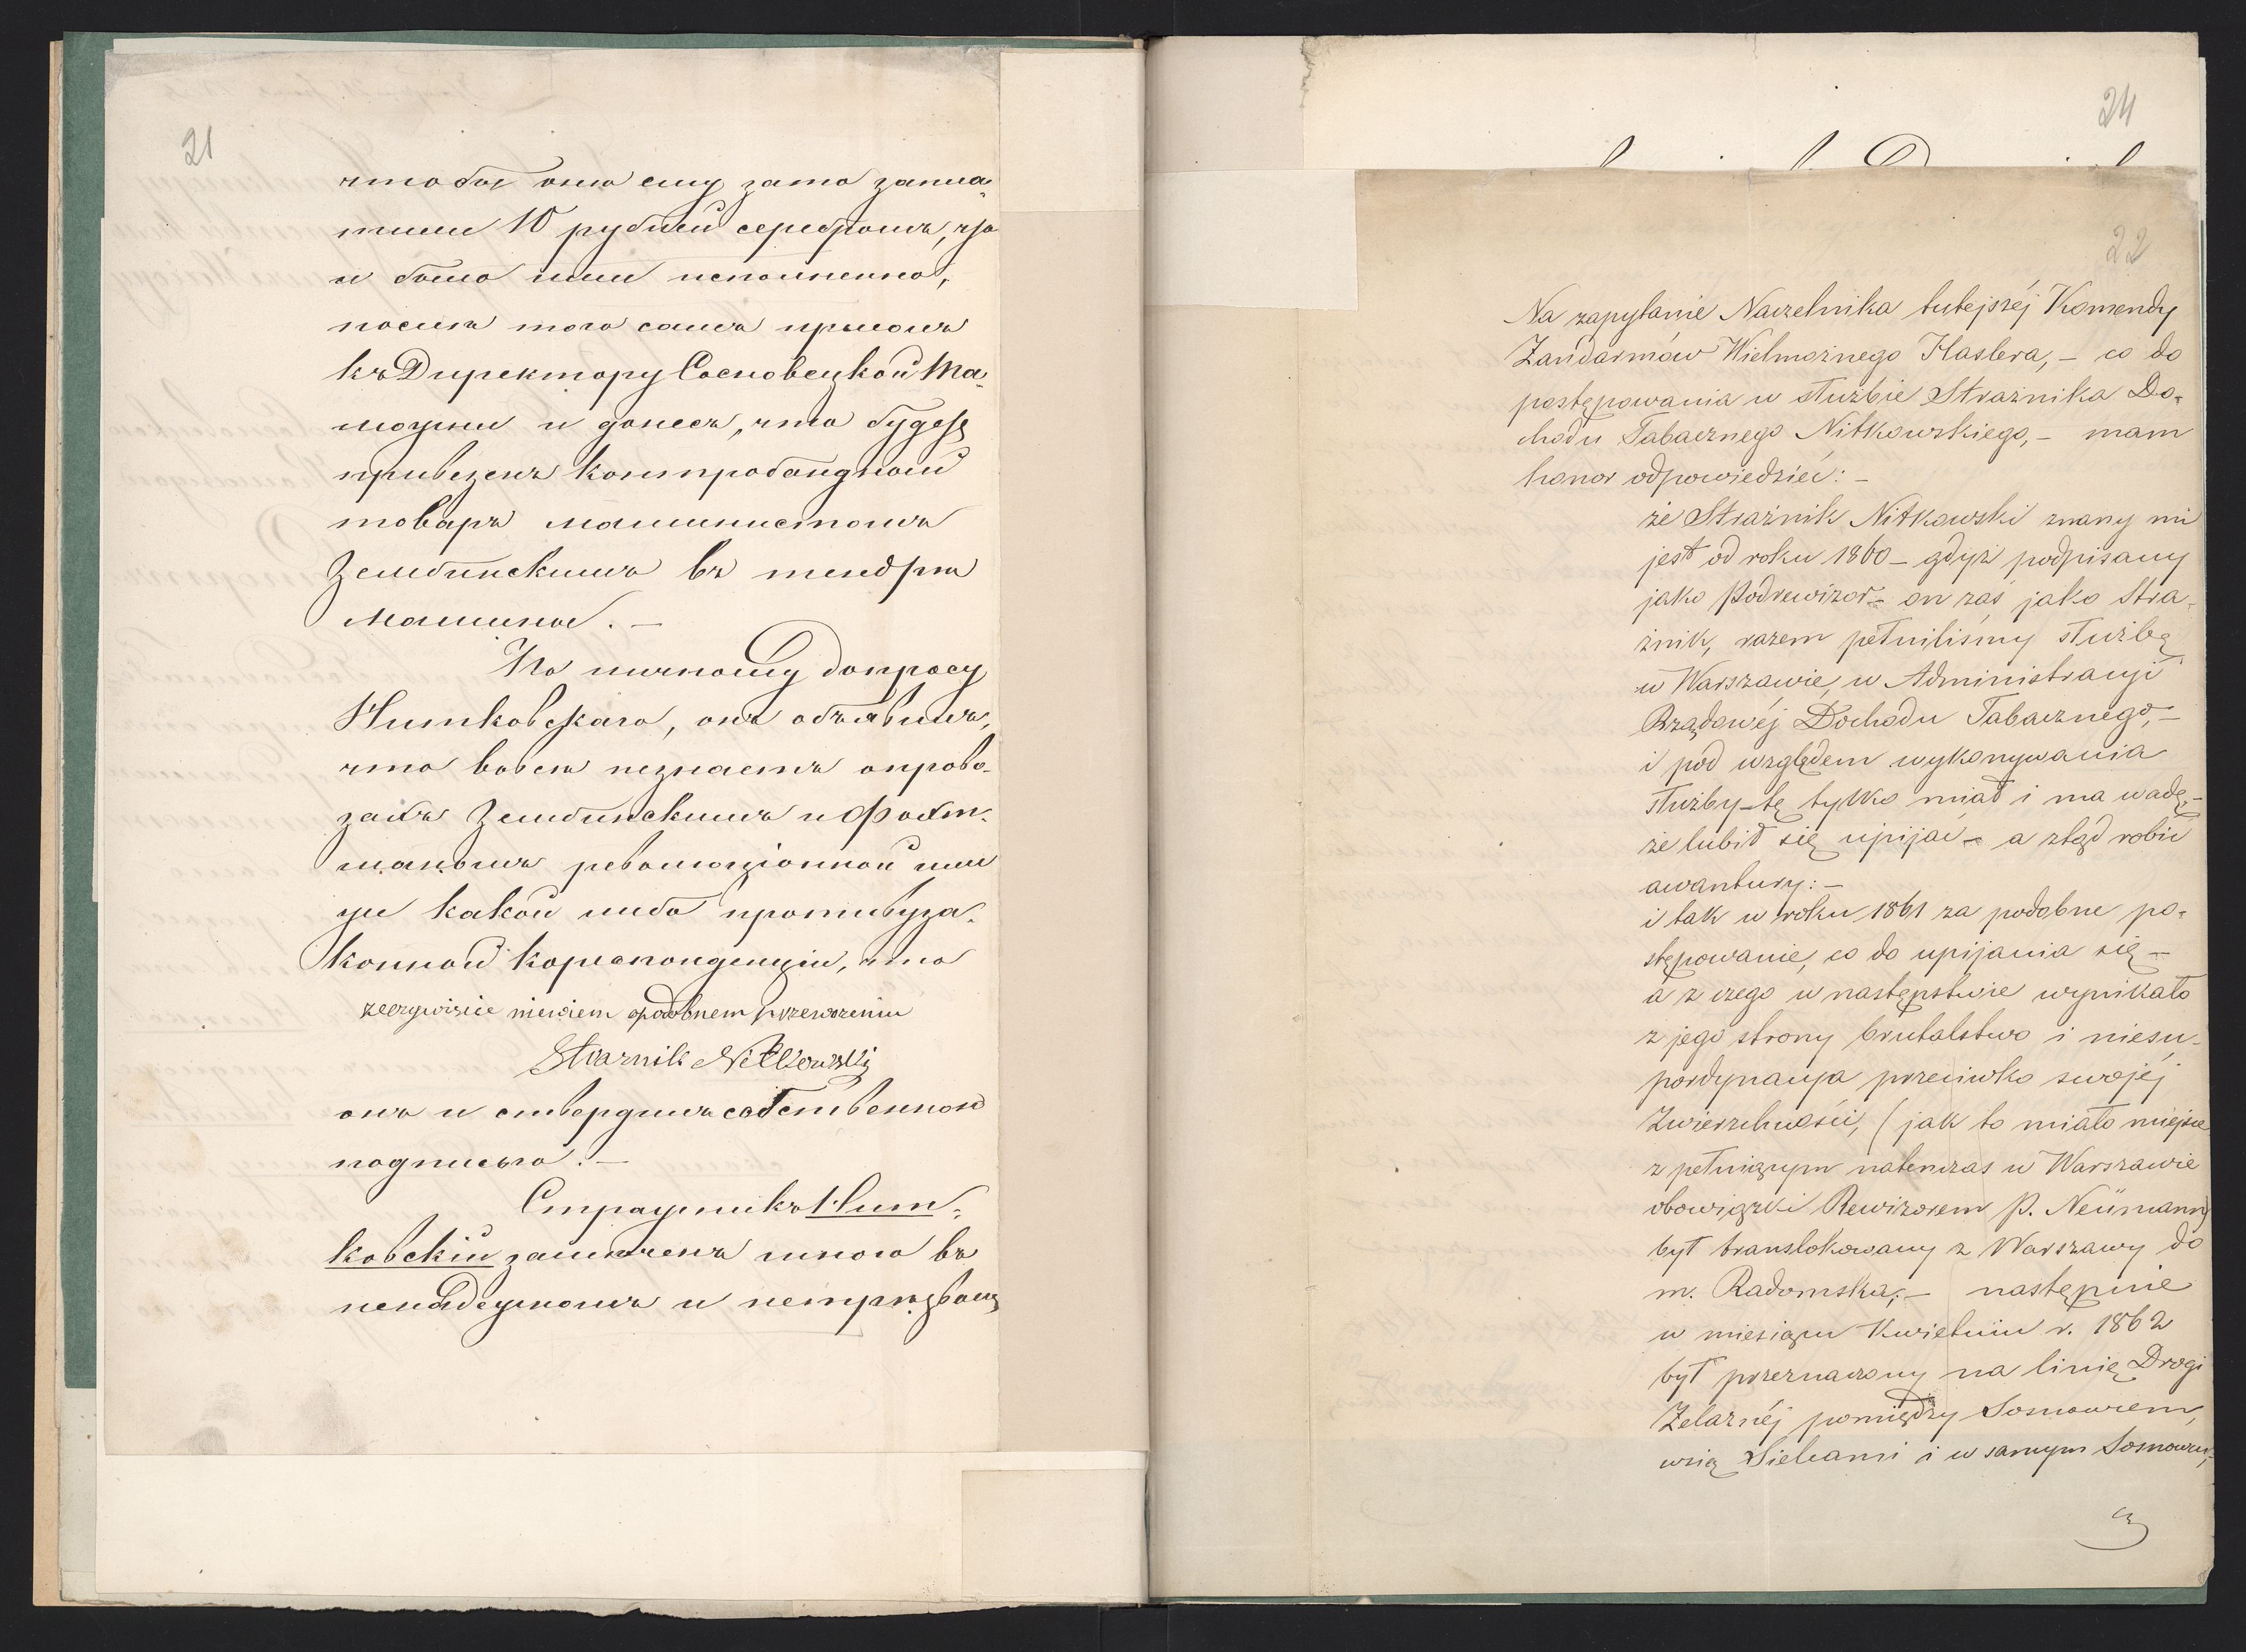 21
чтобы они ему зато запла-
тили 10 рублей серебромъ, что
и было ими исполнено,
после того самъ пришолъ
къ Директору Сосновецкой Та-
можни и донесъ, что будетъ
привезенъ контробандной
товаръ машинистомъ
Зембинскимъ въ тендрѣ
машины. —
По личному допросу
Нитковскаго, онъ объявилъ,
что вовсе незнаетъ опрово-
захъ Зембинскимъ и
революціонной или
же какой либо противуза-
конной кореспонденціи, что
rzeczywiście niewiem opodobnem przewożeniu
Strażnik Nitkowski
онъ и ствердилъ собственною
подписью. —
Стражникъ Нит-
ковскій замеченъ много въ
ненадежномъ и нетрезвомъ
24
22
Na zapytanie Naczelnika tutejszéj Komendy
Żandarmów Wielmożnego Hastera, — co do
postępowania w służbie Strażnika Do-
chodu Tabacznego Nitkowskiego, — mam
honor odpowiedzieć: —
że Strażnik Nitkowski znany mi
jest od roku 1860 — gdyż podpisany
jako Podrewizor — on zaś jako Stra-
żnik, razem pełniliśmy służbę
w Warszawie, w Administracyi
Rządowéj Dochodu Tabacznego, —
i pod względem wykonywania
służby — tę tylko miał i ma wadę, —
że lubił się upijać — a ztąd robić
awantury: —
i tak w roku 1861 za podobne po-
stępowanie, co do upijania się —
a z czego w następstwie wynikało
z jego strony brutalstwo i niesu-
pordynacyja przeciwko swojéj
Zwierzchności, (jak to miało miejsce
z pełniącym natenczas w Warszawie
obowiązki Rewizorem P. Neümann)
był translokowany z Warszawy do
m. Radomska; — następnie
w miesiącu Kwietniu r. 1862
był przeznaczony na linię Drogi
Żelaznéj pomiędzy Sosnowcem,
wsią Sielcami i w samym Sosnowcu,